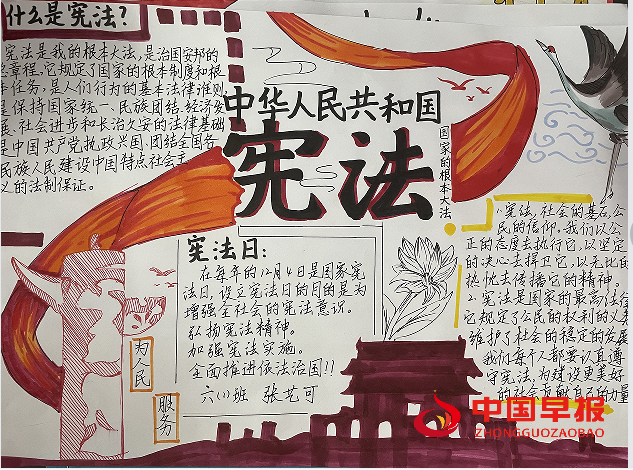 什么是宪法?
宪法是我的根本大法,是治国安邦的
总章程,它规定了国家的根本制度和根
本任务,是人们行为的基本法律准则
是保持国家统一、民族团结、经济发
展、社会进步和长治久安的法律基础
是中国共产党执政兴国、团结全国各
民族人民建设中国特点社会主
义的法制保证。
中华人民共和国
宪法
国家的根本大法
宪法日:
在每年的12月4日是国家宪
法日,设立宪法日的目的是为
增强全社会的宪法意识。
弘扬宪法精神。
加强宪法实施。
全面推进依法治国!!
六(1)班 张艺可
为人民
服务
1.宪法,社会的基石,公
民的信仰,我们以公
正的态度去执行它,以坚定
的决心去捍卫它,以无比的
热忱去传播它的精神。
2.宪法是国家的最高法律
它规定了公民的权利的义务
维护了社会的稳定的发展
我们每个人都要认真遵
守宪法,为建设更美好
的社会贡献自己的力量
中国早报
ZHONGGUOZAOBAO